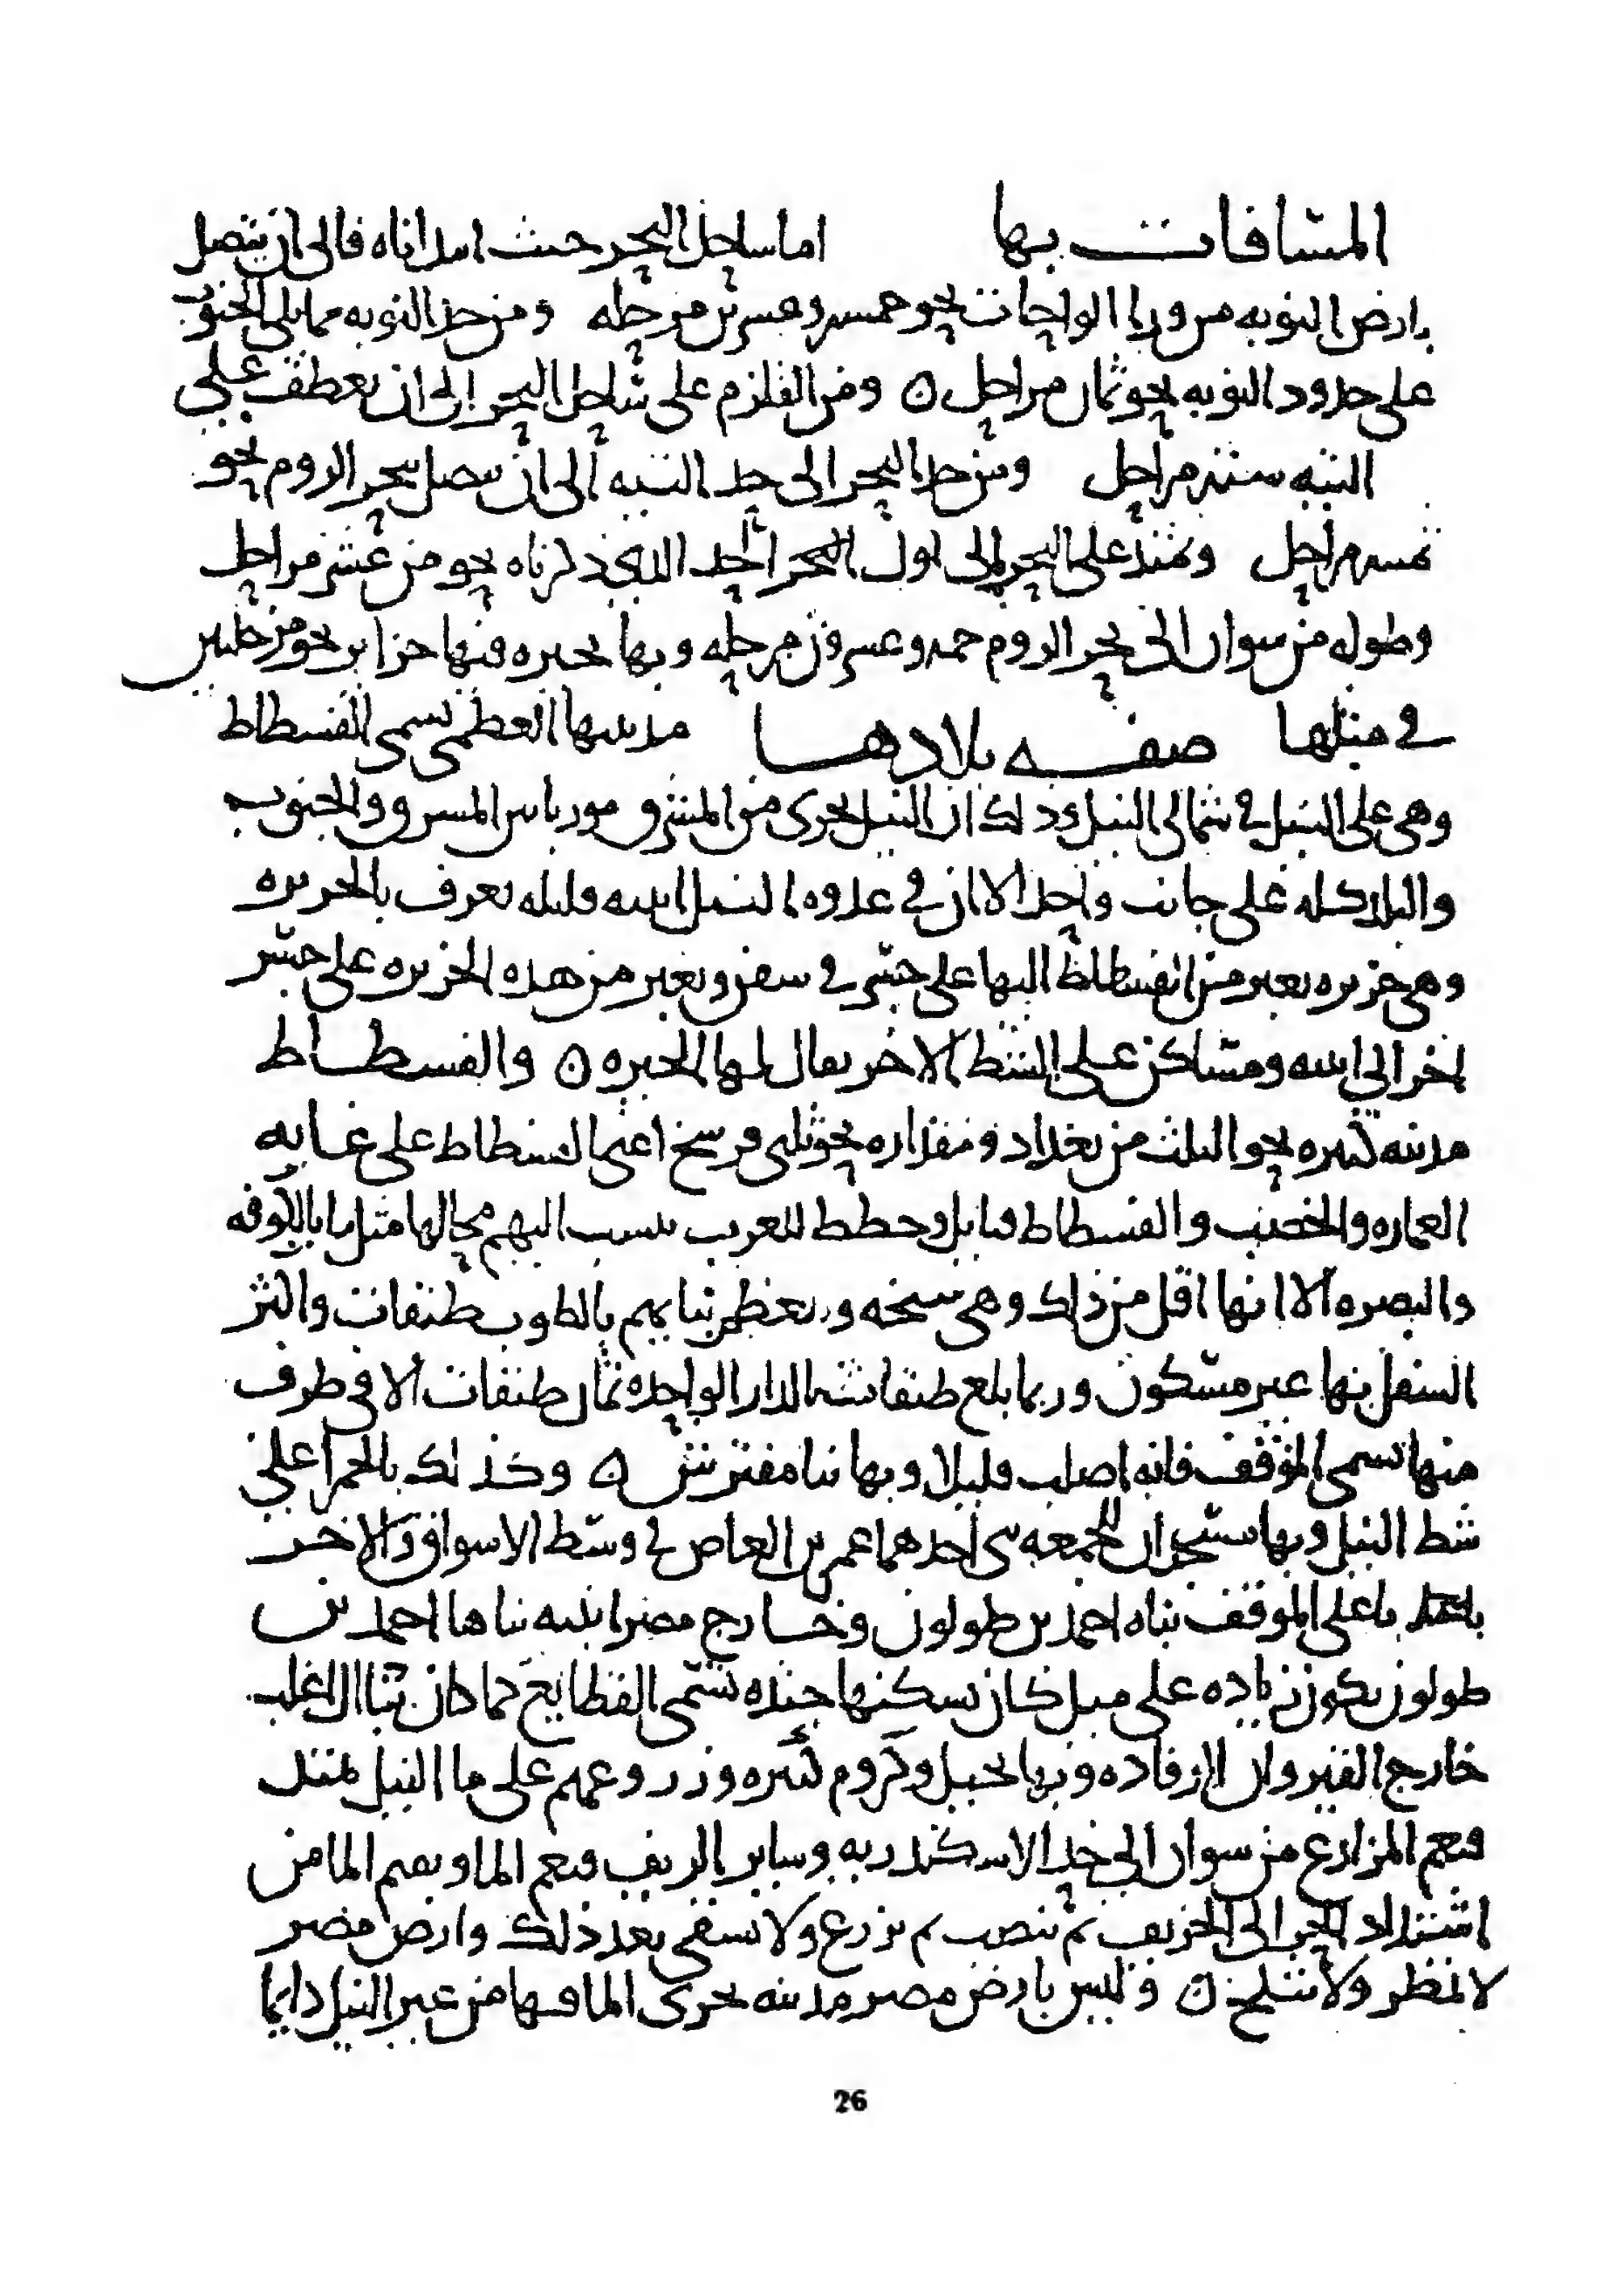 المسافات بها اما ساحل البحر حيث ابتداناه فالى ان يتصل
بارض النوبه من ورا الواحات نحو خمس وعشرين مرحله ومن حد النوبه مما يلي الجنوب
على حدود النوبه نحو ثمان مراحل ومن القلزم على ساحل البحر الى ان يعطف على
التيه ست مراحل ومن حد البحر الى حد التيه الى ان يتصل ببحر الروم نحو
ثمن مراحل ويمتد على البحر الى اول الحد الذي ذكرناه نحو من عشر مراحل
وطوله من اسوان الى بحر الروم خمس وعشرون مرحله وبها بحيره فيها جزاير نحو من مرحلتين
في مثلها صفه بلادها مدينتها العظمى تسمى الفسطاط
وهي على النيل في شمالي النيل وذلك ان النيل يجرى من المشرق مورباً بين المشرق والجنوب
والبلد كله على جانب واحد الا ان في عدوه النيل ابنيه قليله تعرف بالجزيره
وهي جزيره يعبر من الفسطاط اليها على جسر في سفن ويعبر من هذه الجزيره على جسر
اخر الى ابنيه ومساكن على الشط الاخر يقال لها الجيزه والفسطاط
مدينه كبيره نحو الثلث من بغداد ومقداره نحو ثلثي فرسخ اعنى الفسطاط على غايه
العماره والخصب والفسطاط قبايل وخطط للعرب ينسب اليهم محالها مثل ما بالكوفه
والبصره الا انها اقل من ذلك وهي سبخه ومعظم بنايهم بالطوب طبقات واكثر
السفل بها غير مسكون وربما بلغ طبقات الدار الواحده ثمان طبقات الا في طرف
منها تسمى الموقف فانه اصلب قليلا وبها بنا مفترش وكذلك بالحمرا على
شط النيل وبها مسجدان للجمعه بنى احدهما عمرو بن العاص في وسط الاسواق والاخر
باعلى الموقف بناه احمد بن طولون وخارج مصر ابنيه بناها احمد بن
طولون يكون زياده على ميل كان يسكنها جنده تسمى القطايع كما كان بنا ال اغلب
خارج القيروان الرقاده وبها نخيل وكروم كثيره وزروعهم على ما النيل يمتد
فيعم المزارع من اسوان الى حد الاسكندريه وساير الريف فيعم الما ويقيم الما من
اشتداد الحر الى الخريف ثم ينصب ثم يزرع ولا يسقى بعد ذلك وارض مصر
لا تمطر ولا تثلج وليس بارض مصر مدينه يجرى الما فيها من غير النيل دايما
26